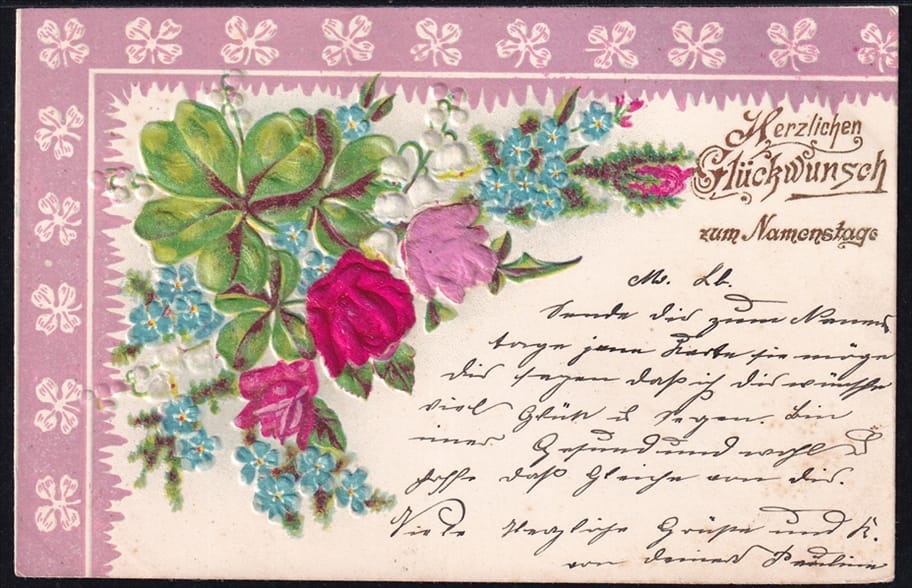 Herzlichen
Glückwunsch
zum Namenstage
M. Lb.
Sende dir zum Namens
tage jene Karte sie möge
dir sagen daß ich dir wünsche
viel Glück & Segen. Bin
immer Gesund und wohl
hoffe daß Gleiche von dir.
Viele Herzliche Grüße und K.
von deiner Pauline